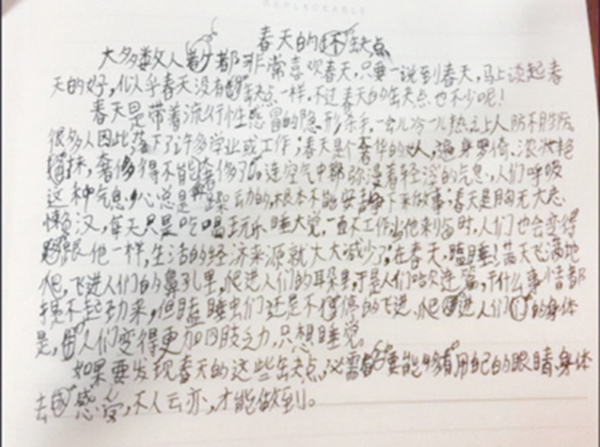 春天的坏缺点
大多数人都非常喜欢春天,只要一说到春天,马上谈起春
天的好,似乎春天没有缺点一样,不过春天的缺点也不少呢!
春天是带着流行性感冒的隐形杀手,一会儿冷一儿热之上人防不胜防,
很多人因此落下了许多学业或工作;春天是个奢华的人,遍身罗绮、浓妆艳
抹,奢侈得不能奢侈了。连空气中都弥漫着轻浮的气息,人们呼吸
这种气息,心总是动的,根本不能安静下来做事;春天是胸无大志
懒汉,每天只是吃喝玩乐、睡大觉,一直不工作,当他来到时,人们也会变得
跟他一样,生活的经济来源就大大减少了;在春天,瞌睡虫满天飞、满地
爬,飞进人们的鼻孔里,爬进人们的耳朵里,于是人们哈欠连篇,干什么事情都
提不起劲来,但瞌睡虫们还是不停停的飞进、爬进人们的身体
是,人们变得更加四肢乏力,只想睡觉。
如果要发现春天的这些缺点,必需要能够用自己的眼睛、身体
去感觉,不人云亦,才能做到。